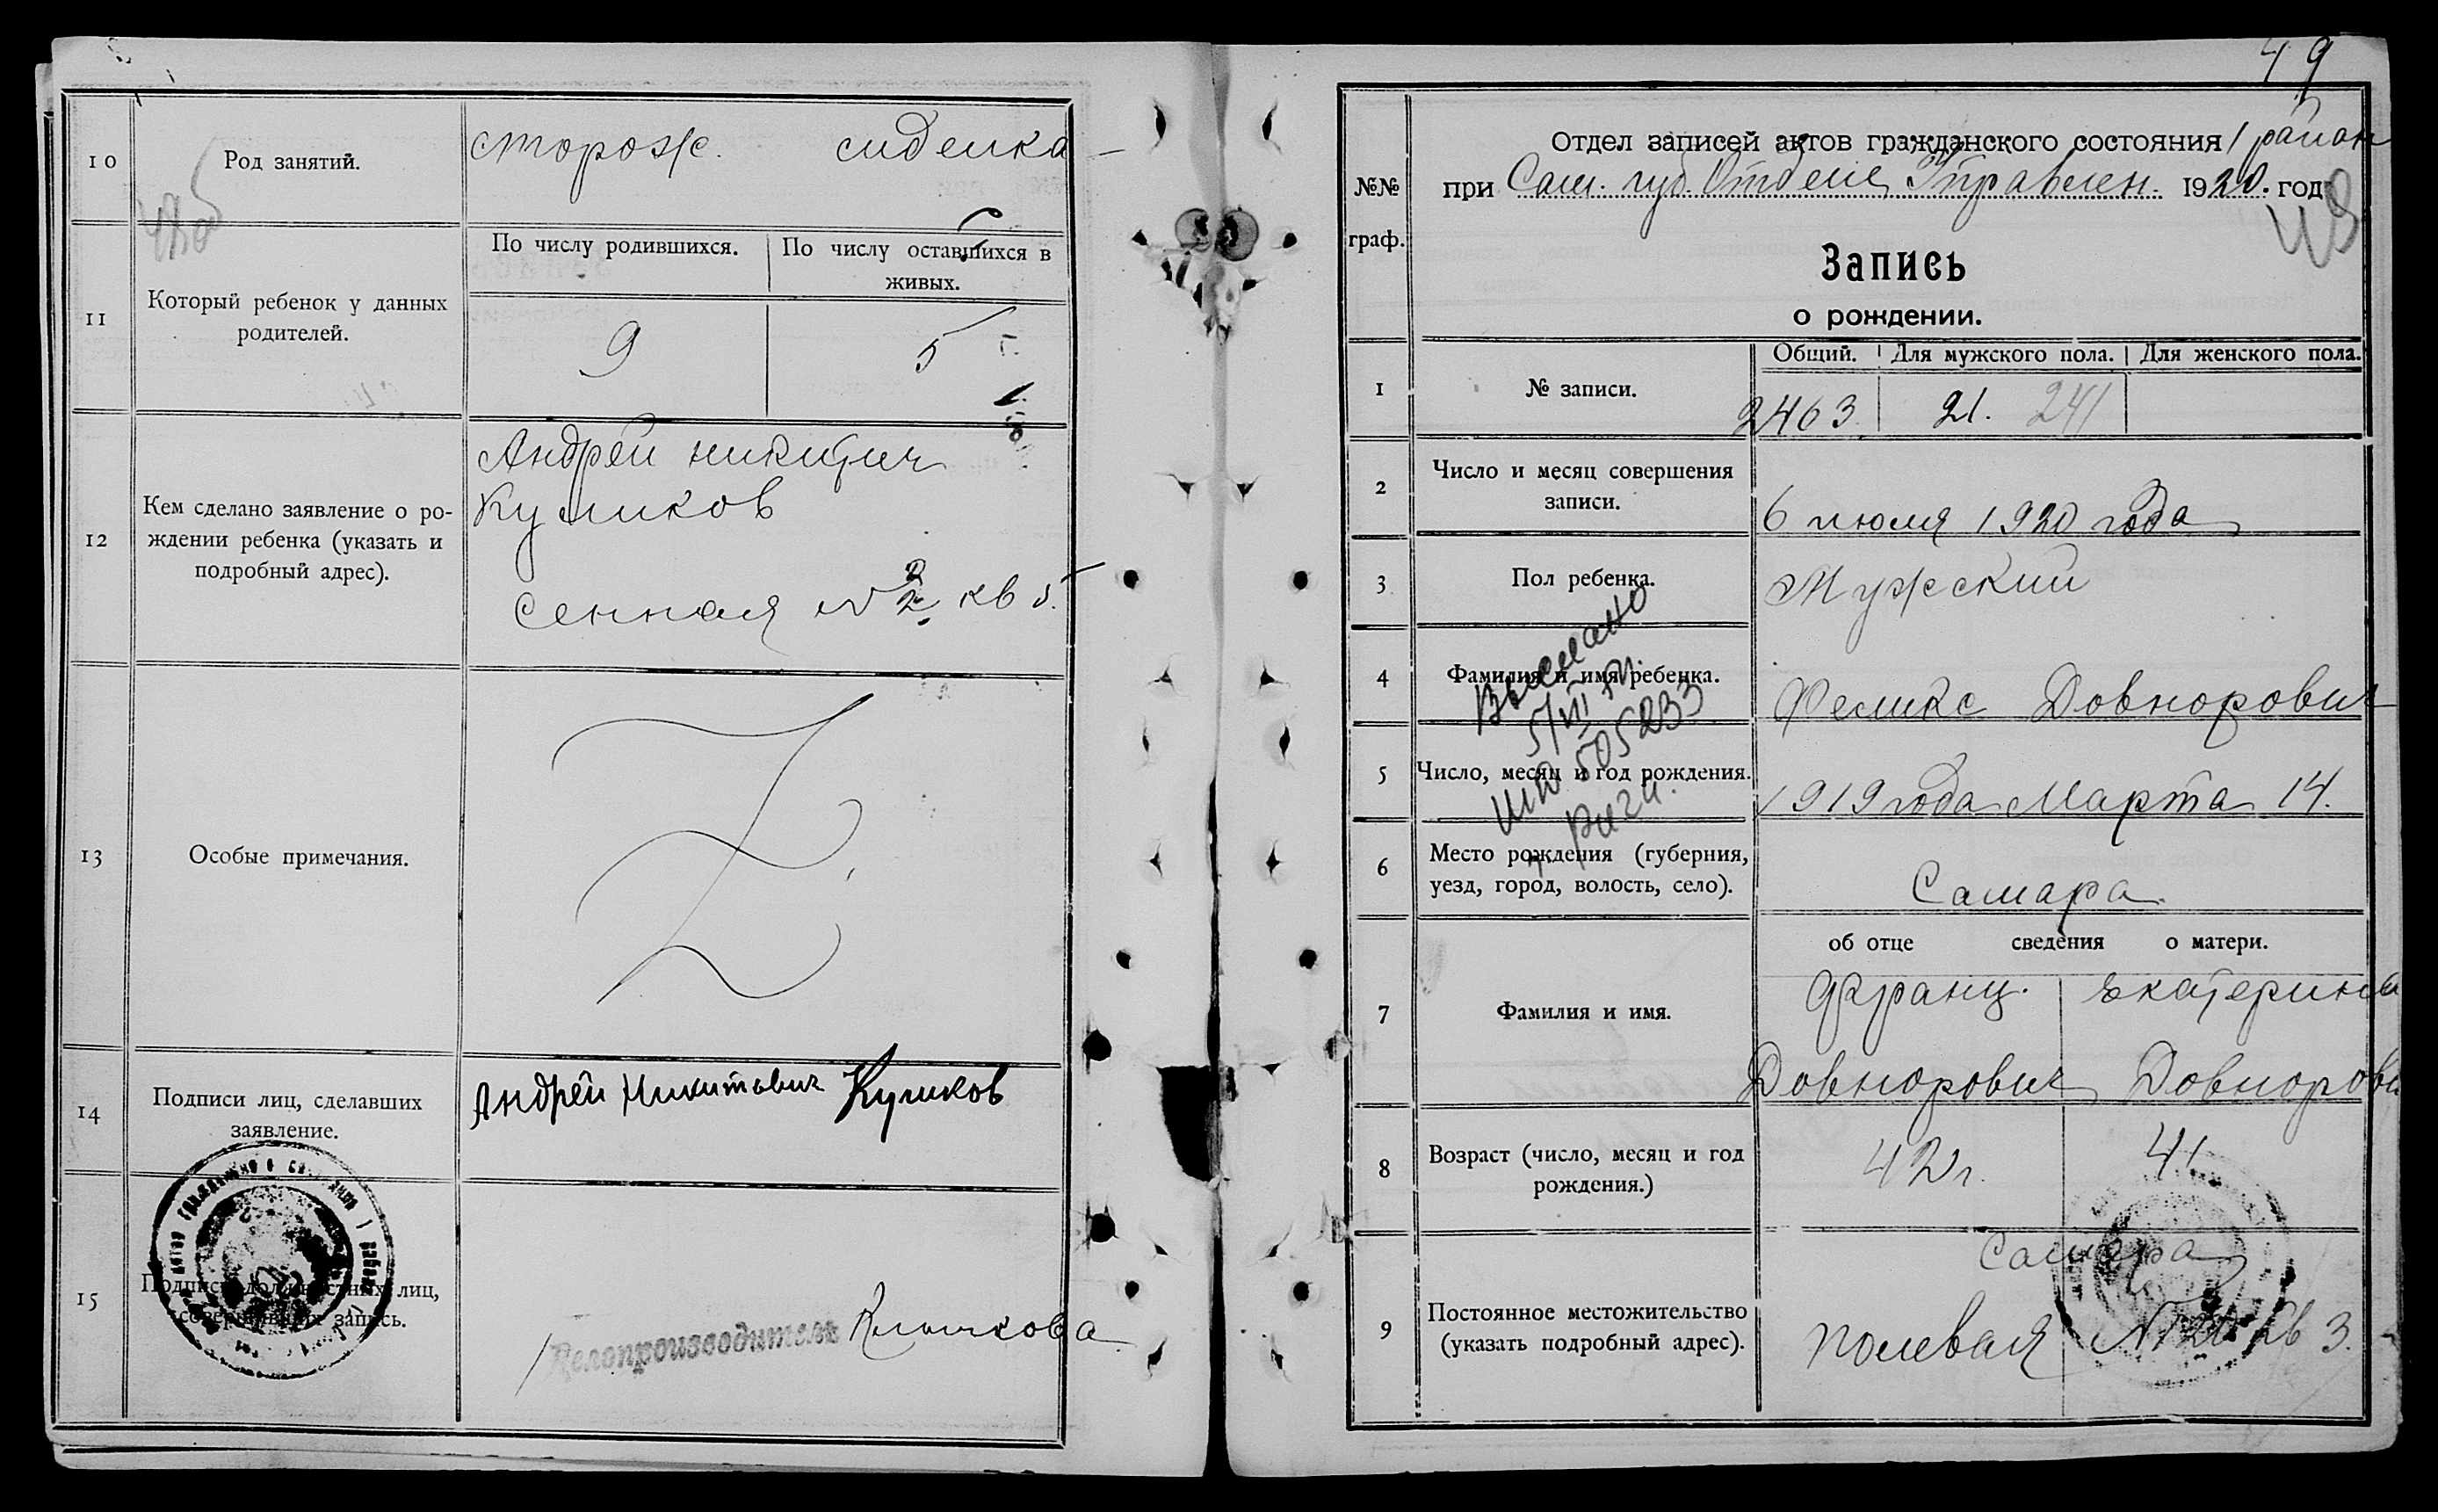 10
Род занятий.
сторож. сиделка
11
Который ребенок у данных
родителей.
По числу родившихся.
По числу оставшихся в
живых.
9
5
12
Кем сделано заявление о ро-
ждении ребенка (указать и
подробный адрес).
Андрей никитич
Куликов
Сенная № 2 кв 5.
13
Особые примечания.
14
Подписи лиц, сделавших
заявление.
Андрей Никитович Куликов
15
Подписи должностных лиц,
совершивших запись.
Делопроизводитель
49
№№
граф.
Отдел записей актов гражданского состояния 1 район
при Сам. губ. Отделе Управлен. 1920. год
48
Запись
о рождении.
1
№ записи.
Общий.
Для мужского пола.
Для женского пола.
2463
21. 241
2
Число и месяц совершения
записи.
6 июля 1920 года
3
Пол ребенка.
Мужский
4
Фамилия и имя ребенка.
Феликс Довнорович
5
Число, месяц и год рождения.
1919 года Марта 14.
6
Место рождения (губерния,
уезд, город, волость, село).
Самара
об отце сведения о матери.
7
Фамилия и имя.
Франц. Екатерина
Довнорович Довнорович
8
Возраст (число, месяц и год
рождения.)
42 г. 41
9
Постоянное местожительство
(указать подробный адрес).
Самара
полевая № 20 кв 3.
505233